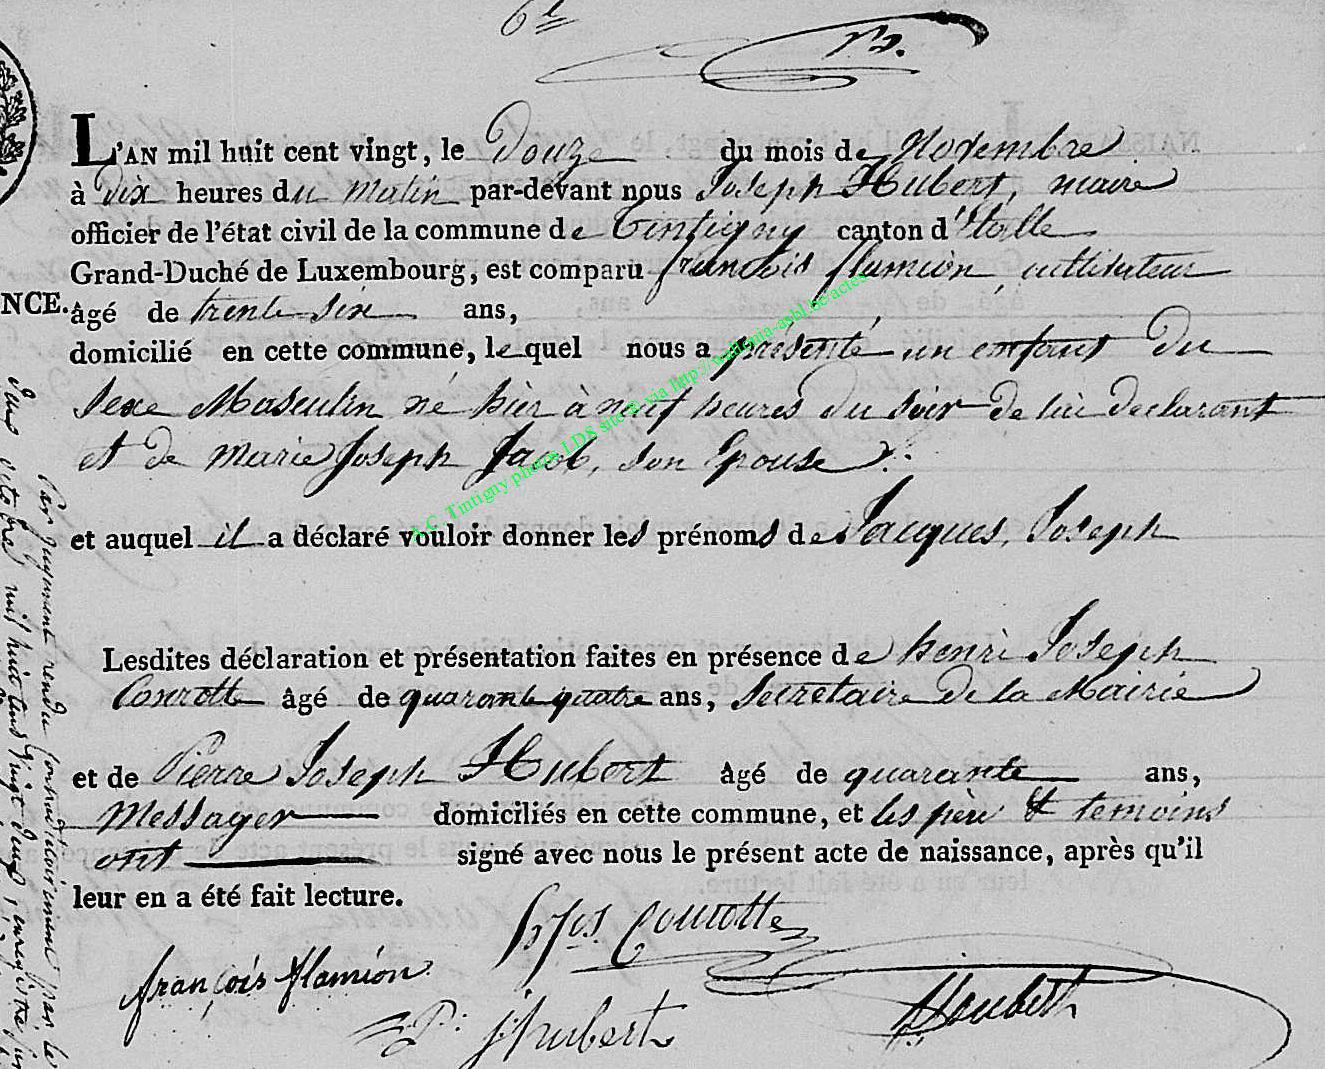 L'AN mil huit cent vingt, le Douze du mois de Novembre
à Dix heures du Matin par-devant nous Joseph Hubert, maire
officier de l'état civil de la commune de Tintigny canton d'Etalle
Grand-Duché de Luxembourg, est comparu françois flamion, cultivateur
NCE.
âgé de trente six ans,
domicilié en cette commune, lequel nous a présenté un enfant Du
Sexe Masculin né hier à neuf heures du Soir de lui declarant
et de Marie Joseph Jacob, son Epouse
et auquel il a déclaré vouloir donner les prénoms de Jacques, Joseph
Lesdites déclaration et présentation faites en présence de henri Joseph
Conrotte âgé de quarante quatre ans, Secretaire De la Mairie
et de Pierre Joseph Hubert âgé de quarante ans,
Messager domiciliés en cette commune, et les père & temoins
ont signé avec nous le présent acte de naissance, après qu'il
leur en a été fait lecture.
Conrotte
françois flamion
P. j. hubert
Hubert
Par jugement rendu contradictoirement par le
mil huit cent vingt deux, enregistré
A.C. Tintigny photos LDS site © via http://wallonia-asbl.be/actes